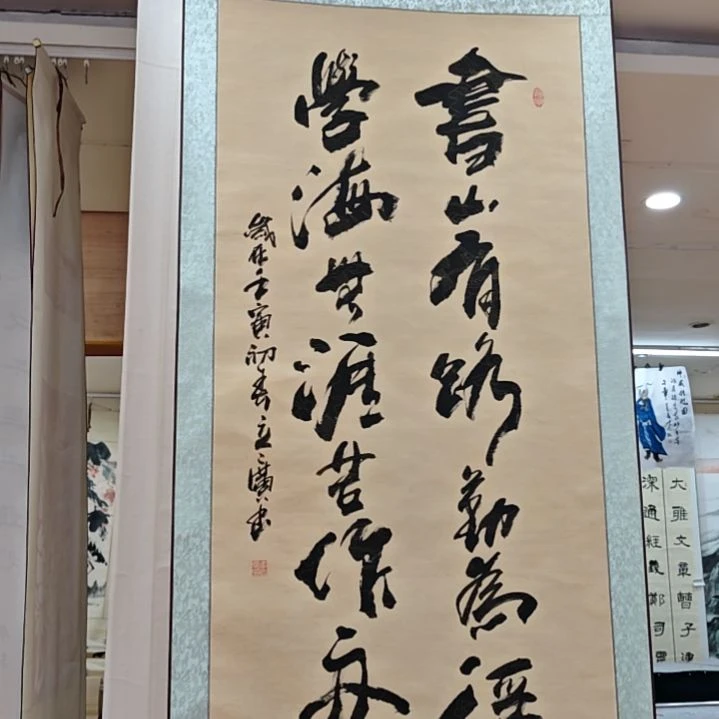 書山有路勤為徑
學海無涯苦作舟
歲在壬寅初春立廣書
大雅文章曹子建
深通經義鄭司農